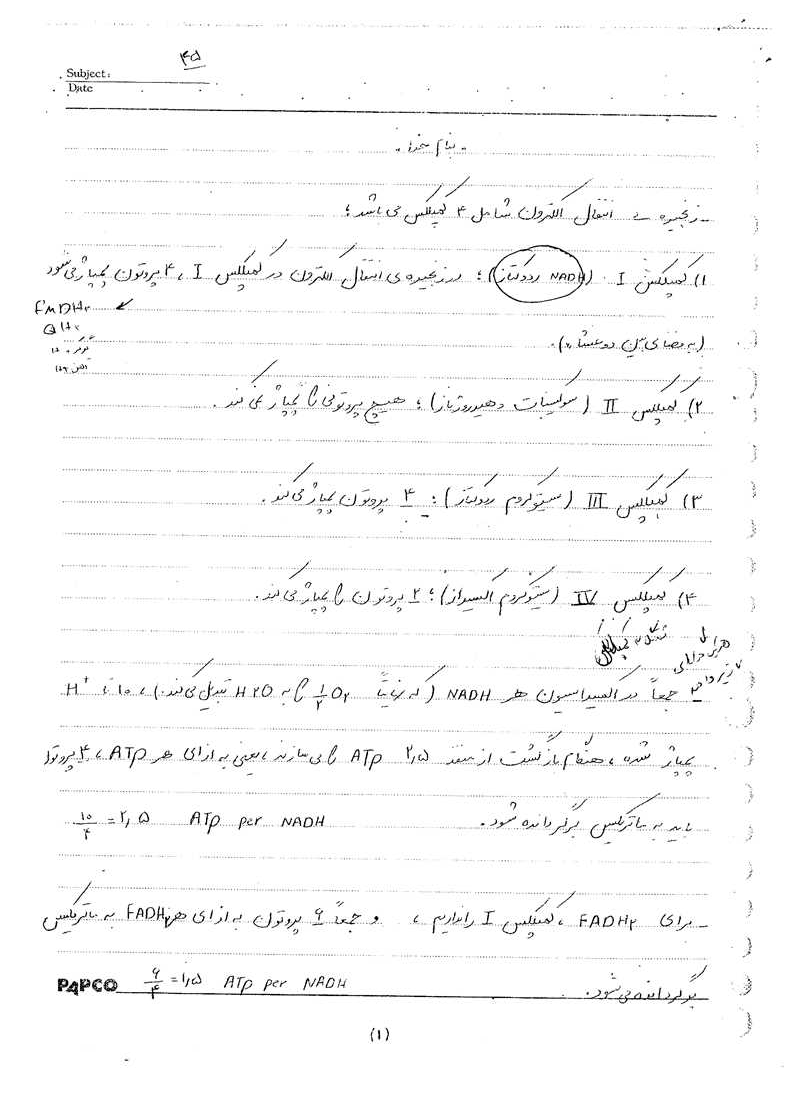 ۴۵
Subject:
Date
- بنام خدا -
- زنجیره ی انتقال الکترون شامل ۴ کمپلکس می باشد؛
۱) کمپلکس I (NADH ردوکتاز)؛ در زنجیره ی انتقال الکترون در کمپلکس I ، ۴ پروتون پمپاژ می شود
FMDH۲
QH۲
(به فضای بین دو غشاء).
۲) کمپلکس II (سوکسینات دهیدروژناز)؛ هیچ پروتونی را پمپاژ نمی کند.
۳) کمپلکس III (سیتوکروم ردوکتاز)؛ ۴ پروتون پمپاژ می کند.
۴) کمپلکس IV (سیتوکروم اکسیداز)؛ ۲ پروتون را پمپاژ می کند.
جمعاً در اکسیداسیون هر NADH (که نهایتاً ½O۲ را به H۲O تبدیل می کند)، ۱۰ تا H+
پمپاژ شده، هنگام بازگشت از منفذ ۲,۵ ATP را می سازند، یعنی به ازای هر ATP، ۴ پروتون
باید به ماتریکس برگردانده شود. ۱۰/۴ = ۲,۵ ATP per NADH
- برای FADH۲ ، کمپلکس I را نداریم ، و جمعاً ۶ پروتون به ازای هر FADH۲ به ماتریکس
برگردانده می شود. ۶/۴ = ۱,۵ ATP per NADH
PAPCO
(۱)